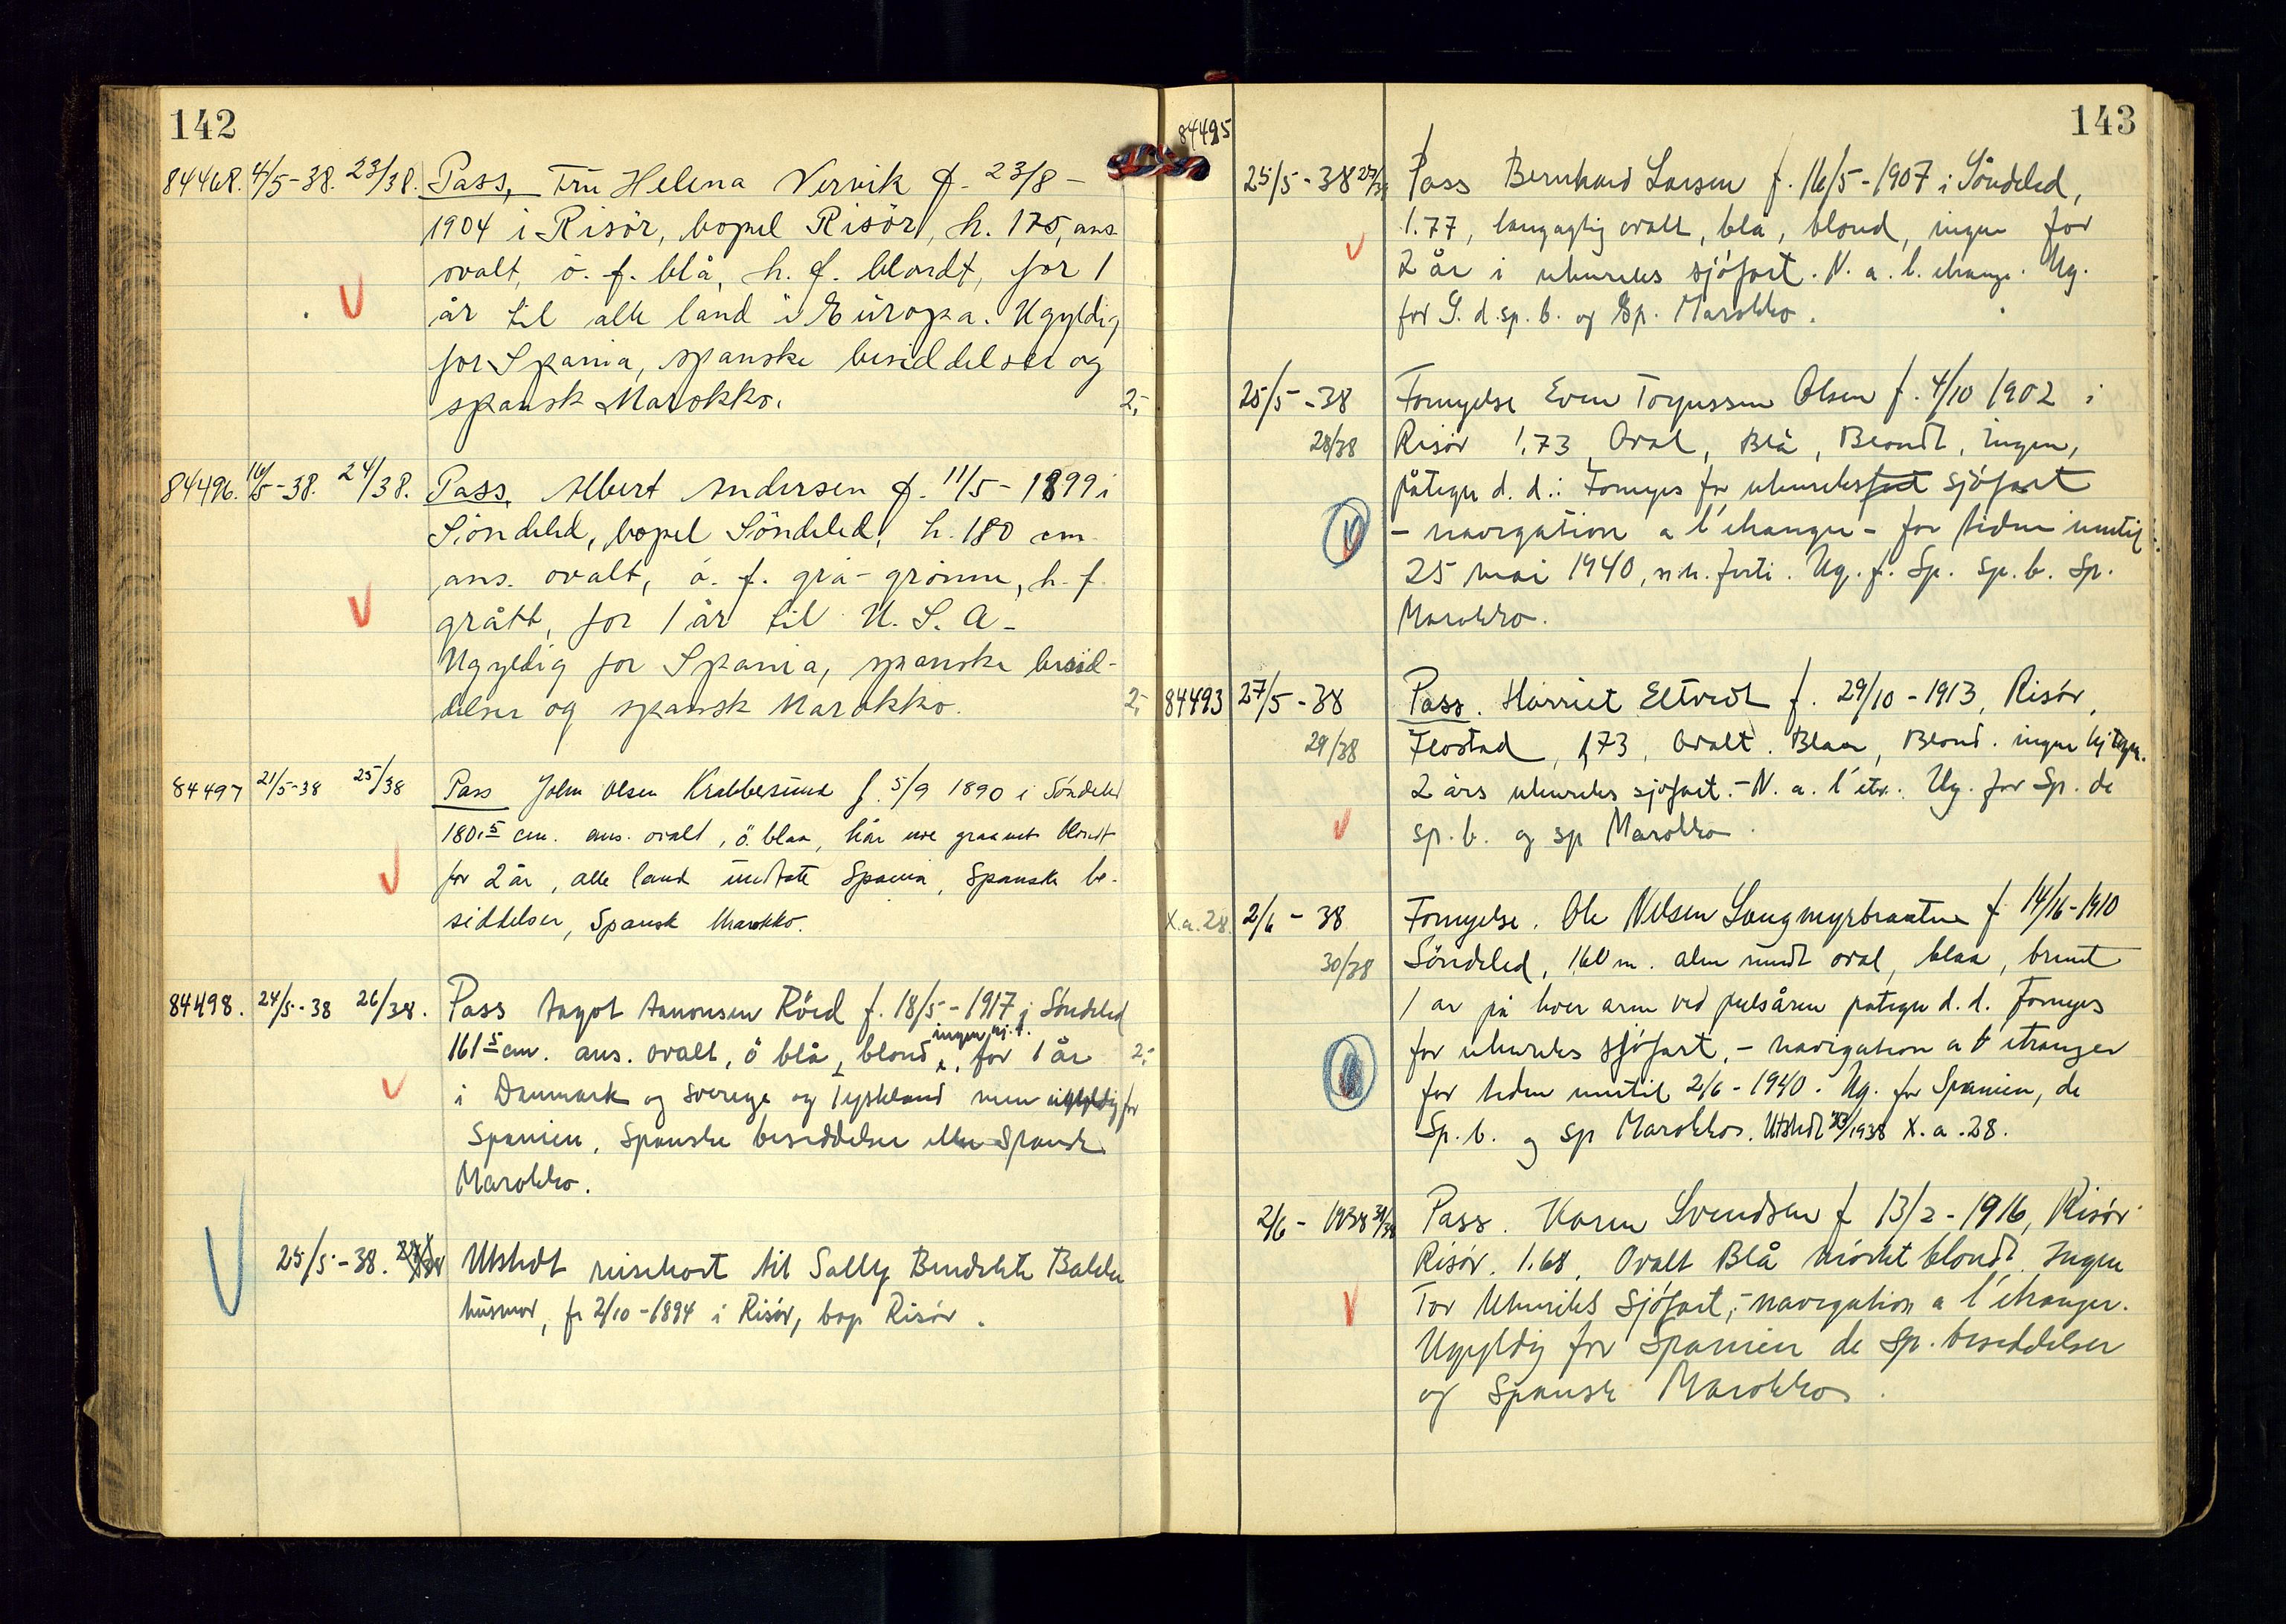 142
84468. 4/5-38. 23/38. Pass, Frü Helena Vervik f. 23/8 -
1904 i Risör, bopel Risör, h. 175, ans.
ovalt, ö. f. blå, h. f. blondt, for 1
år til alle land i Europa. Ugyldig
for Spania, spanske besiddelser og
spansk Marokko. 2,-
84496. 16/5-38. 24/38. Pass. Albert Andersen f. 11/5 - 1899 i
Söndeled, bopel Söndeled, h. 180 cm
ans. ovalt, ö. f. grå-grönne, h. f.
grått, for 1 år til U. S. A.
Ugyldig for Spania, spanske besid-
delser og spansk Marokko. 2,-
84497 21/5-38 25/38 Pass John Olsen Krabbesund f. 5/9 1890 i Söndeled
180,5 cm. ans. ovalt, ö. blaa, hår graanet blondt
for 2 år, alle land undtatt Spania, Spanske be-
siddelser, Spansk Marokko.
84498. 24/5-38 26/38. Pass Aagot Aanonsen Röed f. 18/5-1917 i Söndeled
ingen kj. t.
161 5 cm. ans. ovalt, ö blå, blond, for 1 år 2,-
i Danmark og Sverige og Tyskland men ugyldig for
Spanien, Spanske besiddelser eller Spansk
Marokko.
25/5-38. Utstedt reisekort til Sally Bendikte
husmor, f. 2/10-1894 i Risör, bop Risör.
143
84495
25/5-38 27/38 Pass Bernhard Larsen f. 16/5-1907 i Söndeled,
1.77, langagtig ovalt, blå, blond, ingen for
2 år i utenriks sjöfart. N. a. l. etrange. Ug.
for S. d. sp. b. og Sp. Marokko.
25/5-38 Fornyelse Even Torjussen Olsen f. 4/10 1902 i
28/38 Risör 1,73, Oval, Blå, Blondt, Ingen,
påtegn d. d.: Fornyes for utenriksfart sjöfart
- navigation a l'etranger - for tiden inntil
25 mai 1940, Ug. f. Sp. Sp. b. Sp.
Marokko.
84493 27/5-38 Pass. Harriet Eltvedt f. 29/10-1913, Risör,
29/38 Flostad, 1,73, Ovalt. Blaa, Blond. ingen kj tegn.
2 års utenriks sjöfart. - N. a. l'etr. Ug. for Sp. de
sp. b. og sp Marokko.
X.a.28. 2/6-38 Fornyelse. Ole Nilsen Langmyrbraaten f 14/16-1910
30/38 Söndeled, 160 m. alm rundt oval, blaa, brunt
1 ar på hver arm ved pulsåren påtegn d. d. Fornyes
for utenriks sjöfart, - navigation a l' etranger
for tiden inntil 2/6-1940. Ug. for Spanien, de
Sp. b. og sp Marokko. Utstedt 1938 X. a. 28.
2/6-1938 31/38 Pass. Karen Svendsen f 13/2-1916, Risör
Risör. 1.68, Ovalt Blå mörkt blondt. Ingen
For Utenriks Sjöfart, - navigation a l'etranger.
Ugyldig for Spanien de Sp. besiddelser
og Spansk Marokko.